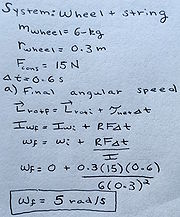 System: Wheel + string
mwheel = 6-kg
rwheel = 0.3 m
Fcons = 15 N
Δt = 0.6 s
a) Final angular speed
L⃗rotf = L⃗roti + τ⃗netΔt
Iωf = Iωi + RFΔt
ωf = ωi + RFΔt / I
ωf = 0 + 0.3(15)(0.6) / 6(0.3)²
ωf = 5 rad/s